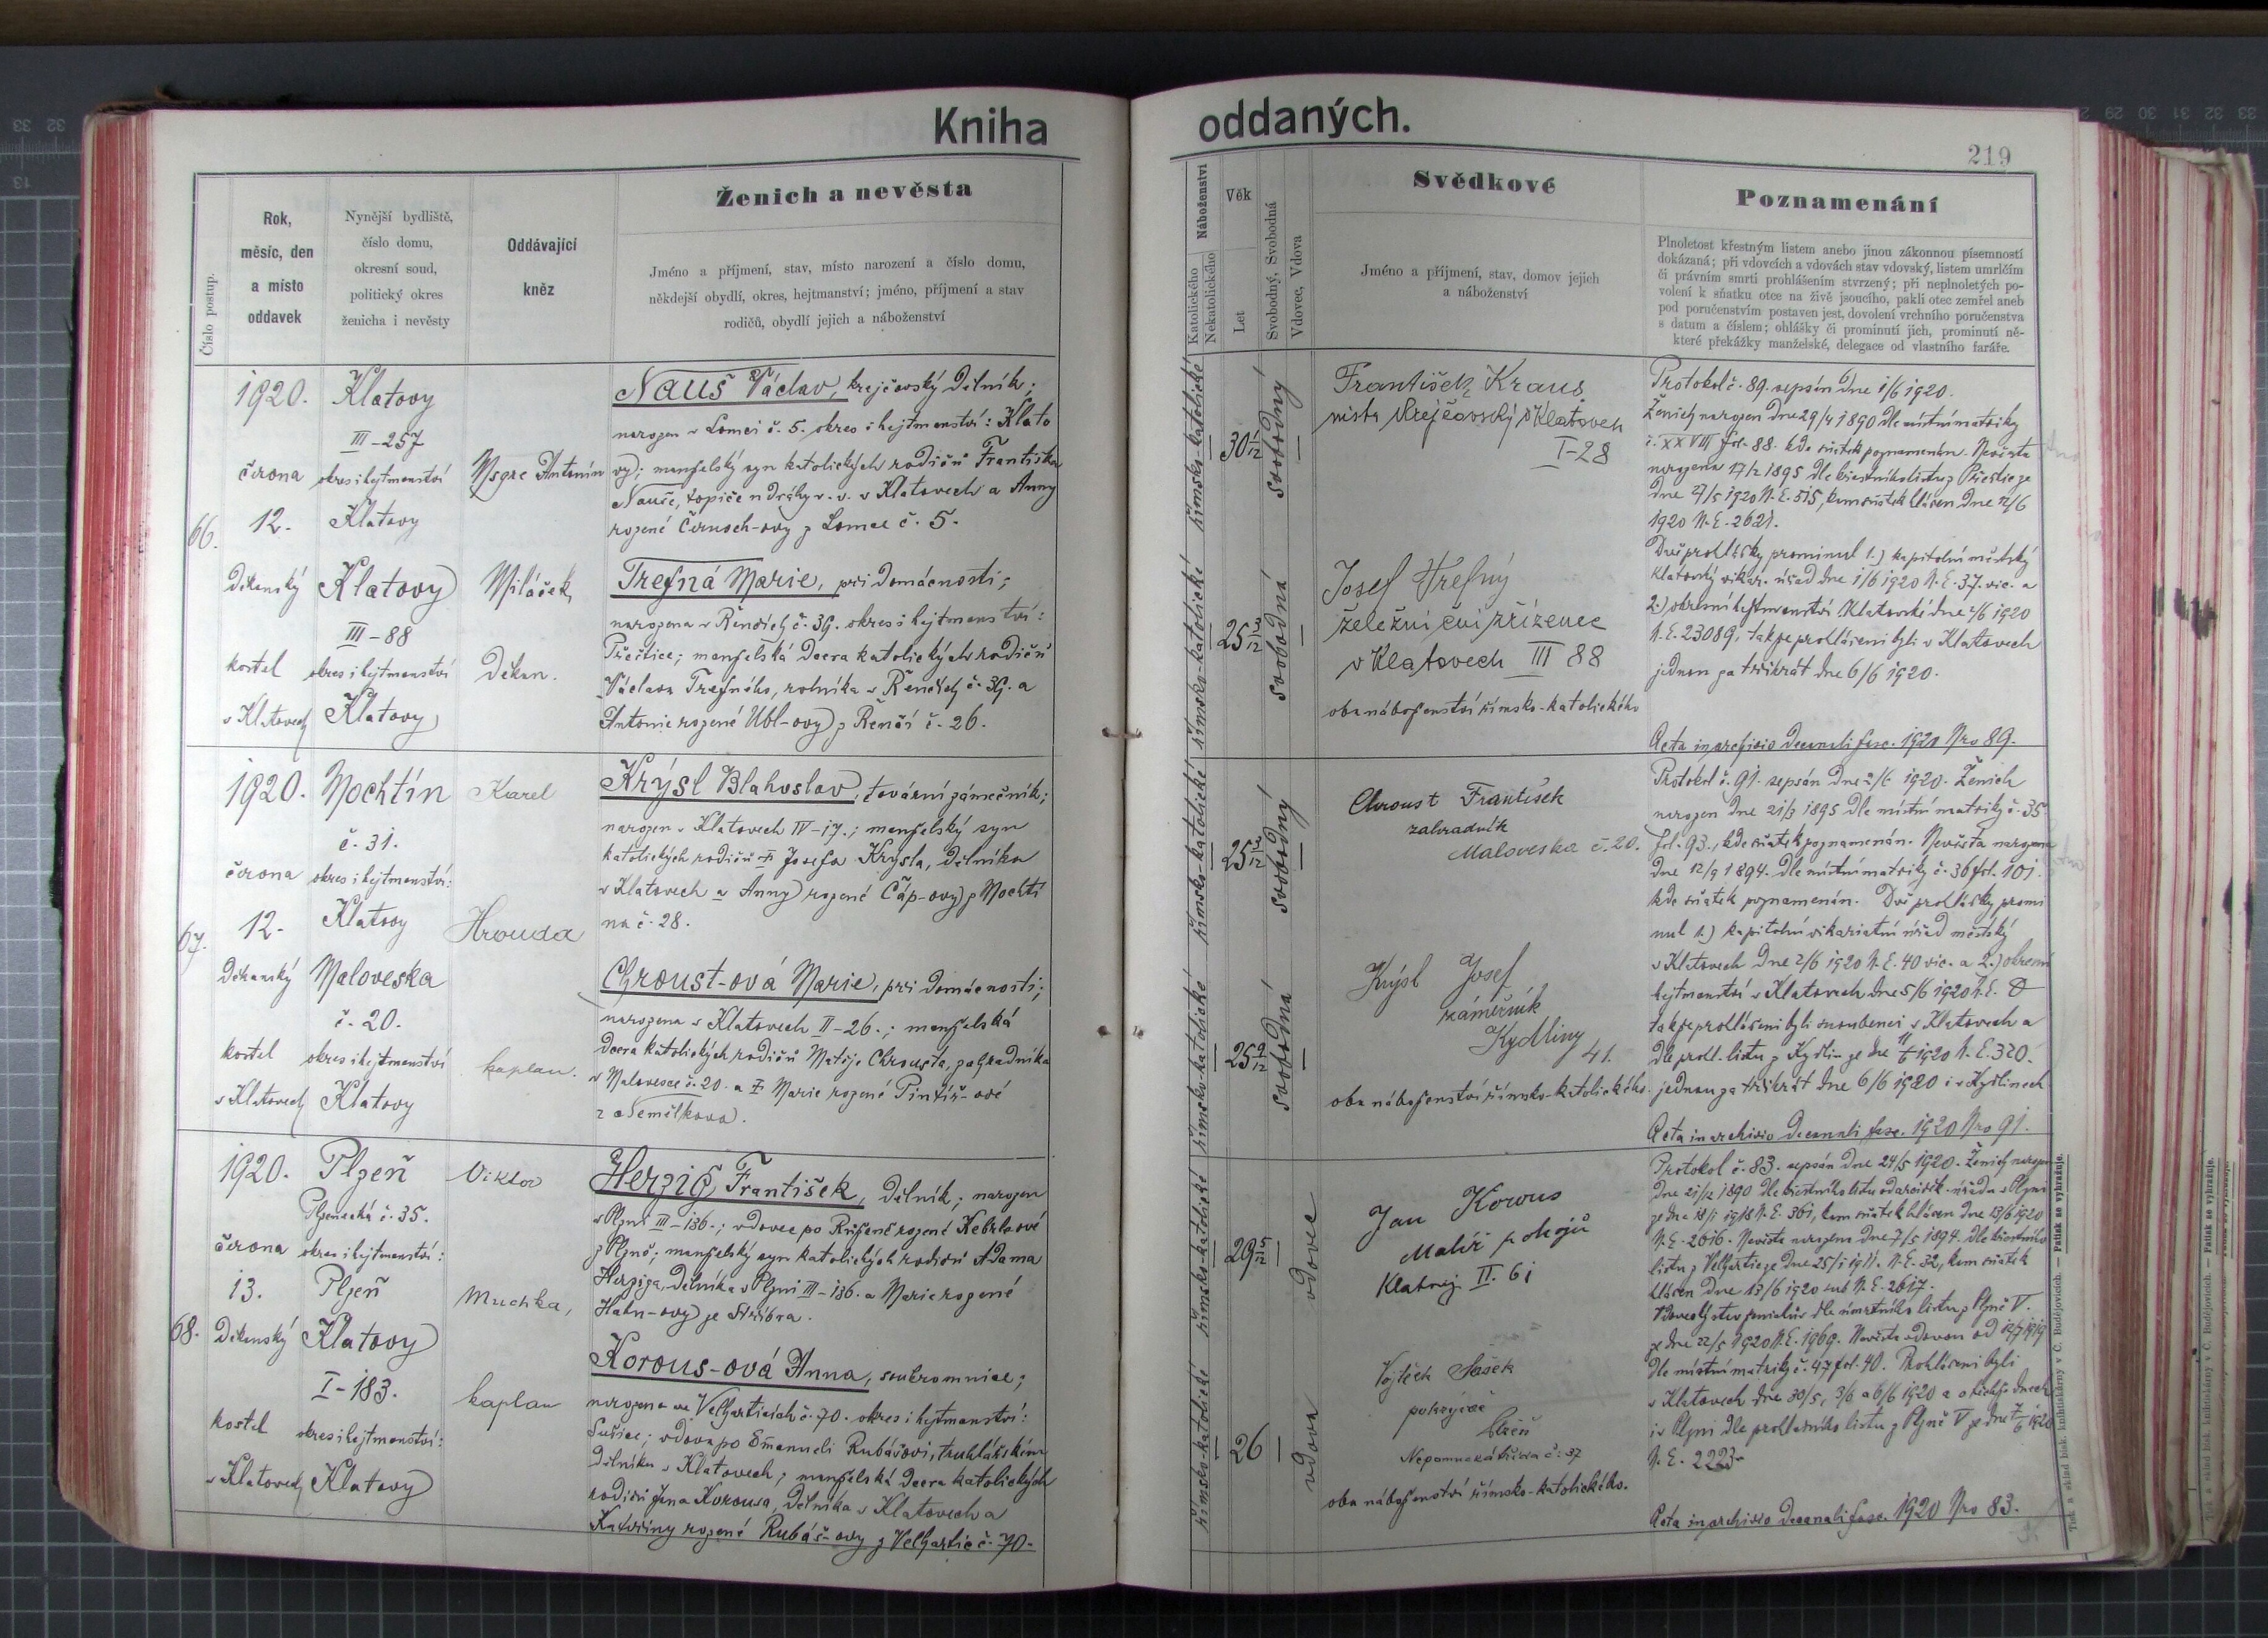 Kniha
oddaných.
219
Číslo postup.
Rok,
měsíc, den
a místo
oddavek
Nynější bydliště,
číslo domu,
okresní soud,
politický okres
ženicha i nevěsty
Oddávající
kněz
Ženich a nevěsta
Jméno a příjmení, stav, místo narození a číslo domu,
někdejší obydlí, okres, hejtmanství; jméno, příjmení a stav
rodičů, obydlí jejich a náboženství
Náboženství
Katolického
Nekatolického
Věk
Let
Svobodný, Svobodná
Vdovec, Vdova
Svědkové
Jméno a příjmení, stav, domov jejich
a náboženství
Poznamenání
Plnoletost křestným listem anebo jinou zákonnou písemností
dokázaná; při vdovcích a vdovách stav vdovský, listem umrlčím
či právním smrti prohlášením stvrzený; při neplnoletých po-
volení k sňatku otce na živě jsoucího, pakli otec zemřel aneb
pod poručenstvím postaven jest, dovolení vrchního poručenstva
s datum a číslem; ohlášky či prominutí jich, prominutí ně-
které překážky manželské, delegace od vlastního faráře.
66.
1920.
června
12.
Děkanský
kostel
v Klatovech
Klatovy
III-257
okres i hejtmanství
Klatovy
Klatovy
III-88
okres i hejtmanství
Klatovy
Msgre Antonín
Miláček,
Děkan.
Nauš Václav, krejčovský dělník;
narozen v Lomci č. 5. okres i hejtmanství: Klato
vy; manželský syn katolických rodičů Františka
Nauše, topiče u dráhy v. v. v Klatovech a Anny
rozené Černoch-ovy z Lomce č. 5.
Trefná Marie, při domácnosti;
narozena v Řenčích č. 39. okres i hejtmanství:
Přeštice; manželská dcera katolických rodičů
Václava Trefného, rolníka v Řenčích č. 39. a
Antonie rozené Übl-ovy z Řenčí č. 26.
římsko-katolické
římsko-katolické
30 1/12
25 3/12
svobodný
svobodná
František Kraus
mistr krejčovský v Klatovech
I-28
Josef Trefný
železniční zřízenec
v Klatovech III 88
oba náboženství římsko-katolického
Protokol č. 89. sepsán dne 1/6 1920.
Ženich narozen dne 29/4 1890 dle místní matriky
č. XXVIII fol. 88. kde sňatek poznamenán. Nevěsta
narozena 17/2 1895 dle křestního listu z Přeštic ze
dne 27/5 1920 N. E. 515, kam sňatek hlášen dne 12/6
1920 N. E. 2621.
Dvě prohlášky prominul 1.) kapitolní městský
klatovský vikar. úřad dne 1/6 1920 N. E. 37. vic. a
2.) okresní hejtmanství Klatovské dne 2/6 1920
N. E. 23089, takže prohlášeni byli v Klatovech
jednou za třikrát dne 6/6 1920.
Acta in archivio decanali fasc. 1920 Nro 89.
67.
1920.
června
12.
Děkanský
kostel
v Klatovech
Mochtín
č. 31.
okres i hejtmanství:
Klatovy
Maloveska
č. 20.
okres i hejtmanství
Klatovy
Karel
Hrouda
kaplan.
Krýsl Blahoslav, tovární zámečník;
narozen v Klatovech IV-17.; manželský syn
katolických rodičů † Josefa Krýsla, dělníka
v Klatovech a Anny rozené Čáp-ovy z Mochtí
na č. 28.
Chroust-ová Marie, při domácnosti;
narozena v Klatovech II-26.; manželská
dcera katolických rodičů Matěje Chrousta, zahradníka
v Malovesce č. 20. a † Marie rozené Pintíř-ové
z Nemilkova.
římsko-katolické
římsko-katolické
25 3/12
25 9/12
svobodný
svobodná
Chroust František
zahradník
Maloveska č. 20.
Krýsl Josef
zámečník
Kydliny 41.
oba náboženství římsko-katolického.
Protokol č. 91. sepsán dne 2/6 1920. Ženich
narozen dne 21/3 1895 dle místní matriky č. 35.
fol. 93., kde sňatek poznamenán. Nevěsta narozena
dne 12/9 1894. dle místní matriky č. 36 fol. 101.
kde sňatek poznamenán. Dvě prohlášky promi
nul 1.) kapitolní vikariatní úřad městský
v Klatovech dne 2/6 1920 N. E. 40 vic. a 2.) okresní
hejtmanství v Klatovech dne 5/6 1920 N. E.
takže prohlášeni byli snoubenci v Klatovech a
dle prohl. listu z Kydlin ze dne 11/6 1920 N. E. 320.
jednou za třikrát dne 6/6 1920 i v Kydlinech
Acta in archivio decanali fasc. 1920 Nro 91.
68.
1920.
června
13.
Děkanský
kostel
v Klatovech
Plzeň
Plzenecká č. 35.
okres i hejtmanství:
Plzeň
Klatovy
I-183.
okres i hejtmanství:
Klatovy
Viktor
Muchka,
kaplan
Herzig František, dělník; narozen
v Plzni III-136.; vdovec po Růženě rozené Keberlové
z Plzně; manželský syn katolických rodičů Adama
Herziga, dělníka v Plzni III-136. a Marie rozené
Hahn-ovy ze Stříbra.
Korous-ová Anna, soukromnice;
narozena ve Velharticích č. 70. okres i hejtmanství:
Sušice; vdova po Emanueli Rubášovi, truhlářském
dělníku v Klatovech; manželská dcera katolických
rodičů Jana Korousa, dělníka v Klatovech a
Kateřiny rozené Rubáš-ovy z Velhartic č. 70.
římsko-katolické
římsko-katolické
29 5/12
26
vdovec
vdova
Jan Korous
Malíř pokojů
Klatovy II. 61
Vojtěch Šašek
pokrývač
Plzeň
Nepomucká třída č: 37
oba náboženství římsko-katolického.
Protokol č. 83. sepsán dne 24/5 1920. Ženich narozen
dne 21/12 1890 dle křestního listu od arciděk. úřadu v Plzni
ze dne 18/1 1918 N. E. 361, kam sňatek hlášen dne 13/6 1920
N. E. 2616. Nevěsta narozena dne 7/5 1894. dle křestního
listu z Velhartic ze dne 25/1 1911. N. E. 32, kam sňatek
hlášen dne 13/6 1920 sub N. E. 2617.
Vdovský stav ženichův dle úmrtního listu z Plzně V.
ze dne 22/5 1920 N. E. 1969. Nevěsta vdovou od 1919
dle místní matriky č. 47 fol. 40. Prohlášeni byli
v Klatovech dne 30/5, 3/6 a 6/6 1920 a o těchže dnech
i v Plzni dle prohlašního listu z Plzně V ze dne 7/6 1920
N. E. 2223.
Acta in archivio decanali fasc. 1920 Nro 83.
Tisk a sklad bisk. knihtiskárny v Č. Budějovicích. — Patisk se vyhražuje.